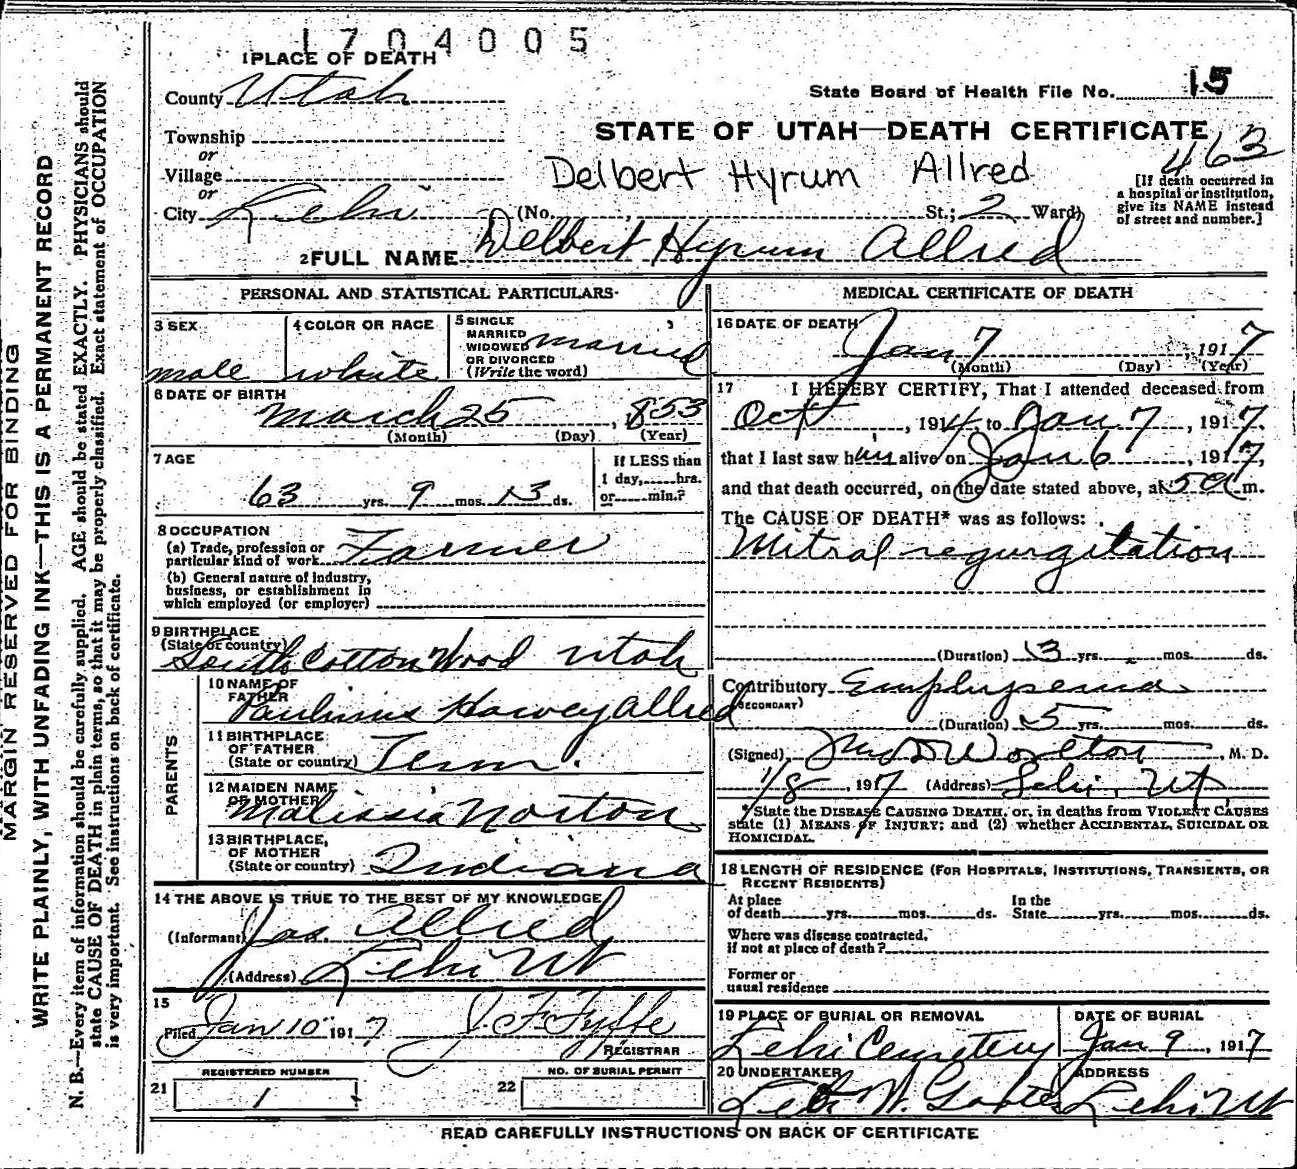 1704005
1 PLACE OF DEATH
County Utah
State Board of Health File No. 15
Township
or
STATE OF UTAH—DEATH CERTIFICATE
463
Village
or
Delbert Hyrum Allred
[If death occurred in
a hospital or institution,
give its NAME instead
of street and number.]
City Lehi (No. , St.; 2 Ward)
2 FULL NAME Delbert Hyrum Allred
PERSONAL AND STATISTICAL PARTICULARS
3 SEX
male
4 COLOR OR RACE
white
5 SINGLE
MARRIED
WIDOWED
OR DIVORCED
(Write the word)
married
6 DATE OF BIRTH
March 25, 1853
(Month) (Day) (Year)
7 AGE
63 yrs. 9 mos. 13 ds.
If LESS than
1 day, hrs.
or min.?
8 OCCUPATION
(a) Trade, profession or
particular kind of work Farmer
(b) General nature of industry,
business, or establishment in
which employed (or employer)
9 BIRTHPLACE
(State or country)
South Cotton Wood Utah
PARENTS
10 NAME OF
FATHER
Harvey Allred
11 BIRTHPLACE
OF FATHER
(State or country) Tenn.
12 MAIDEN NAME
OF MOTHER
Malissia Norton
13 BIRTHPLACE,
OF MOTHER
(State or country) Indiana
14 THE ABOVE IS TRUE TO THE BEST OF MY KNOWLEDGE
(Informant) Jas. Allred
(Address) Lehi Ut
15
Filed Jan 10 1917 J. F. Fyffe
REGISTRAR
21
REGISTERED NUMBER
1
22
NO. OF BURIAL PERMIT
MEDICAL CERTIFICATE OF DEATH
16 DATE OF DEATH
Jan 7, 1917
(Month) (Day) (Year)
17 I HEREBY CERTIFY, That I attended deceased from
Oct, 1914, to Jan 7, 1917.
that I last saw him alive on Jan 6, 1917,
and that death occurred, on the date stated above, at 5 a m.
The CAUSE OF DEATH* was as follows:
Mitral regurgitation
(Duration) 3 yrs. mos. ds.
Contributory Emphysema
(SECONDARY)
(Duration) 5 yrs. mos. ds.
(Signed) Worlton, M. D.
1/8, 1917 (Address) Lehi, Ut
*State the DISEASE CAUSING DEATH, or, in deaths from VIOLENT CAUSES
state (1) MEANS OF INJURY; and (2) whether ACCIDENTAL, SUICIDAL OR
HOMICIDAL.
18 LENGTH OF RESIDENCE (FOR HOSPITALS, INSTITUTIONS, TRANSIENTS, OR
RECENT RESIDENTS)
At place
of death yrs. mos. ds.
In the
State yrs. mos. ds.
Where was disease contracted,
if not at place of death?
Former or
usual residence
19 PLACE OF BURIAL OR REMOVAL
Lehi Cemetery
DATE OF BURIAL
Jan 9, 1917
20 UNDERTAKER
ADDRESS
Lehi Ut
READ CAREFULLY INSTRUCTIONS ON BACK OF CERTIFICATE
MARGIN RESERVED FOR BINDING
WRITE PLAINLY, WITH UNFADING INK—THIS IS A PERMANENT RECORD
N. B.—Every item of information should be carefully supplied. AGE should be stated EXACTLY. PHYSICIANS should
state CAUSE OF DEATH in plain terms, so that it may be properly classified. Exact statement of OCCUPATION
is very important. See instructions on back of certificate.